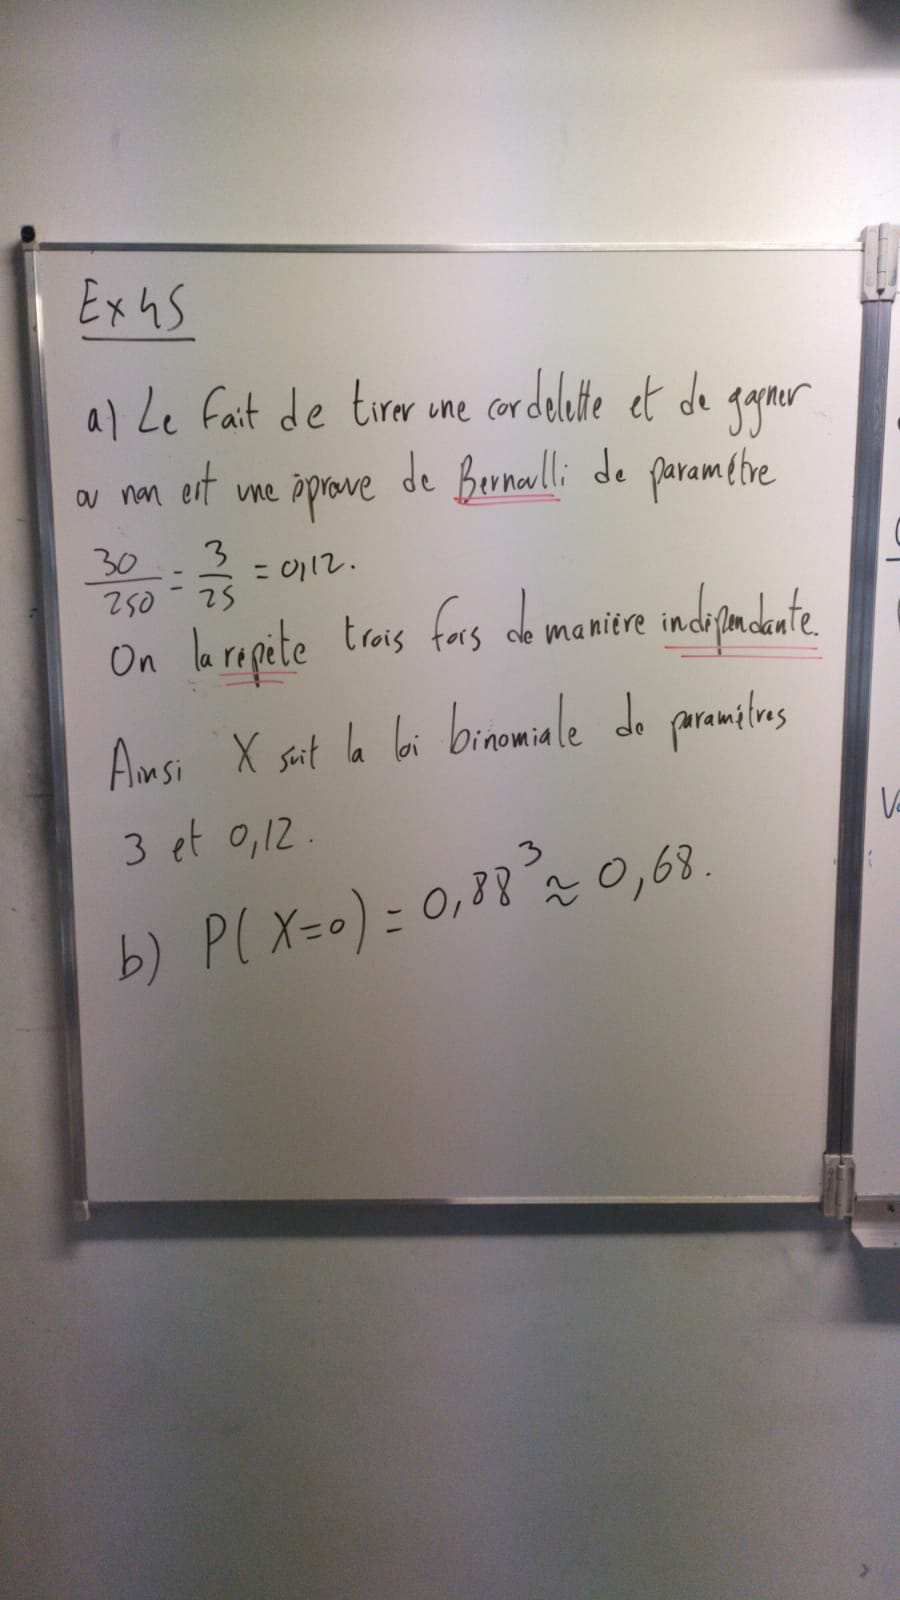 Ex 45
a) Le fait de tirer une cordelette et de gagner
ou non est une épreuve de Bernoulli de paramètre
30/250 = 3/25 = 0,12.
On la répète trois fois de manière indépendante.
Ainsi X suit la loi binomiale de paramètres
3 et 0,12.
b) P(X=0) = 0,88³ ≈ 0,68.